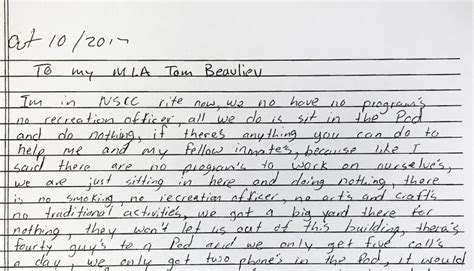 Oct 10/2017
To my MLA Tom Beaulieu
Im in NSCC rite now, we no have no program's
no recreation officer, all we do is sit in the Pod
and do nothing, if there's anything you can do to
help me and my fellow inmates, because like I
said there are no program's to work on ourselve's,
we are just sitting in here and doing nothing, there
is no smoking, no recreation officer, no arts and crafts
no traditional activities, we got a big yard there for
nothing, they won't let us out of this building, there's
fourty guy's to a Pod and we only get five call's
a day, we only got two phone's in the Pod, it would